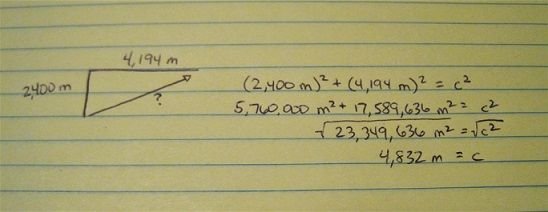 4,194 m
2,400 m
?
(2,400 m)² + (4,194 m)² = c²
5,760,000 m² + 17,589,636 m² = c²
√23,349,636 m² = √c²
4,832 m = c